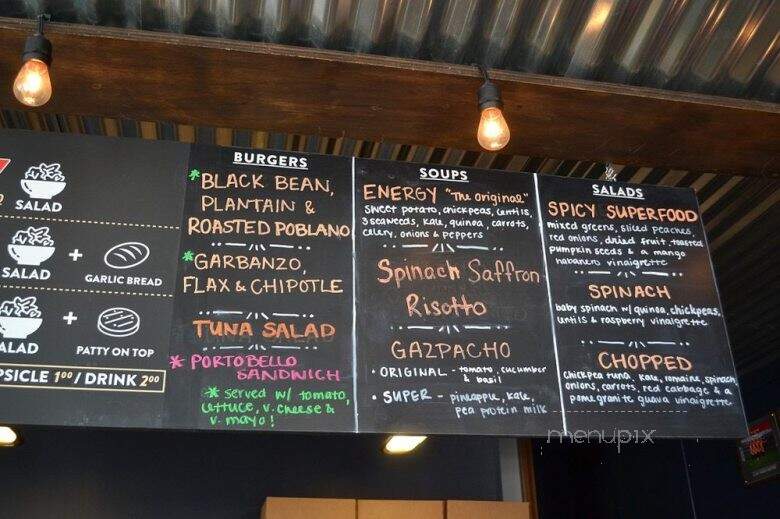 SALAD
SALAD
+
GARLIC BREAD
SALAD
+
PATTY ON TOP
PSICLE 1⁰⁰ / DRINK 2⁰⁰
BURGERS
* BLACK BEAN,
PLANTAIN &
ROASTED POBLANO
* GARBANZO,
FLAX & CHIPOTLE
TUNA SALAD
* PORTOBELLO
SANDWICH
* served w/ tomato,
lettuce, v. cheese &
v. mayo!
SOUPS
ENERGY "The original"
sweet potato, chickpeas, lentils,
3 seaweeds, kale, quinoa, carrots,
celery, onions & peppers
Spinach Saffron
Risotto
GAZPACHO
• ORIGINAL - tomato, cucumber
& basil
• SUPER - pineapple, kale,
pea protein milk
SALADS
SPICY SUPERFOOD
mixed greens, sliced peaches,
red onions, dried fruit, toasted
pumpkin seeds & a mango
habanero vinaigrette
SPINACH
baby spinach w/ quinoa, chickpeas,
lentils & raspberry vinaigrette
CHOPPED
chickpea tuna, kale, romaine, spinach,
onions, carrots, red cabbage & a
pomegranite guava vinaigrette
menupix